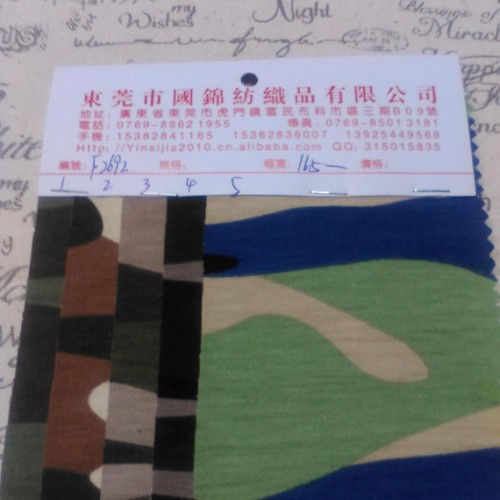 Night
Blessings of
Wishes
Miracl
東莞市國錦紡織品有限公司
地址: 廣東省東莞市虎門鎮富民布料市場三期B09號
電話: 0769-88621955 傳真: 0769-85013181
手機: 15382841165 15362836007 13925449568
Http://Yinsijia2010.cn.alibaba.com QQ: 315015835
編號: F2692 規格: 幅寬: 165 價格:
1 2 3 4 5